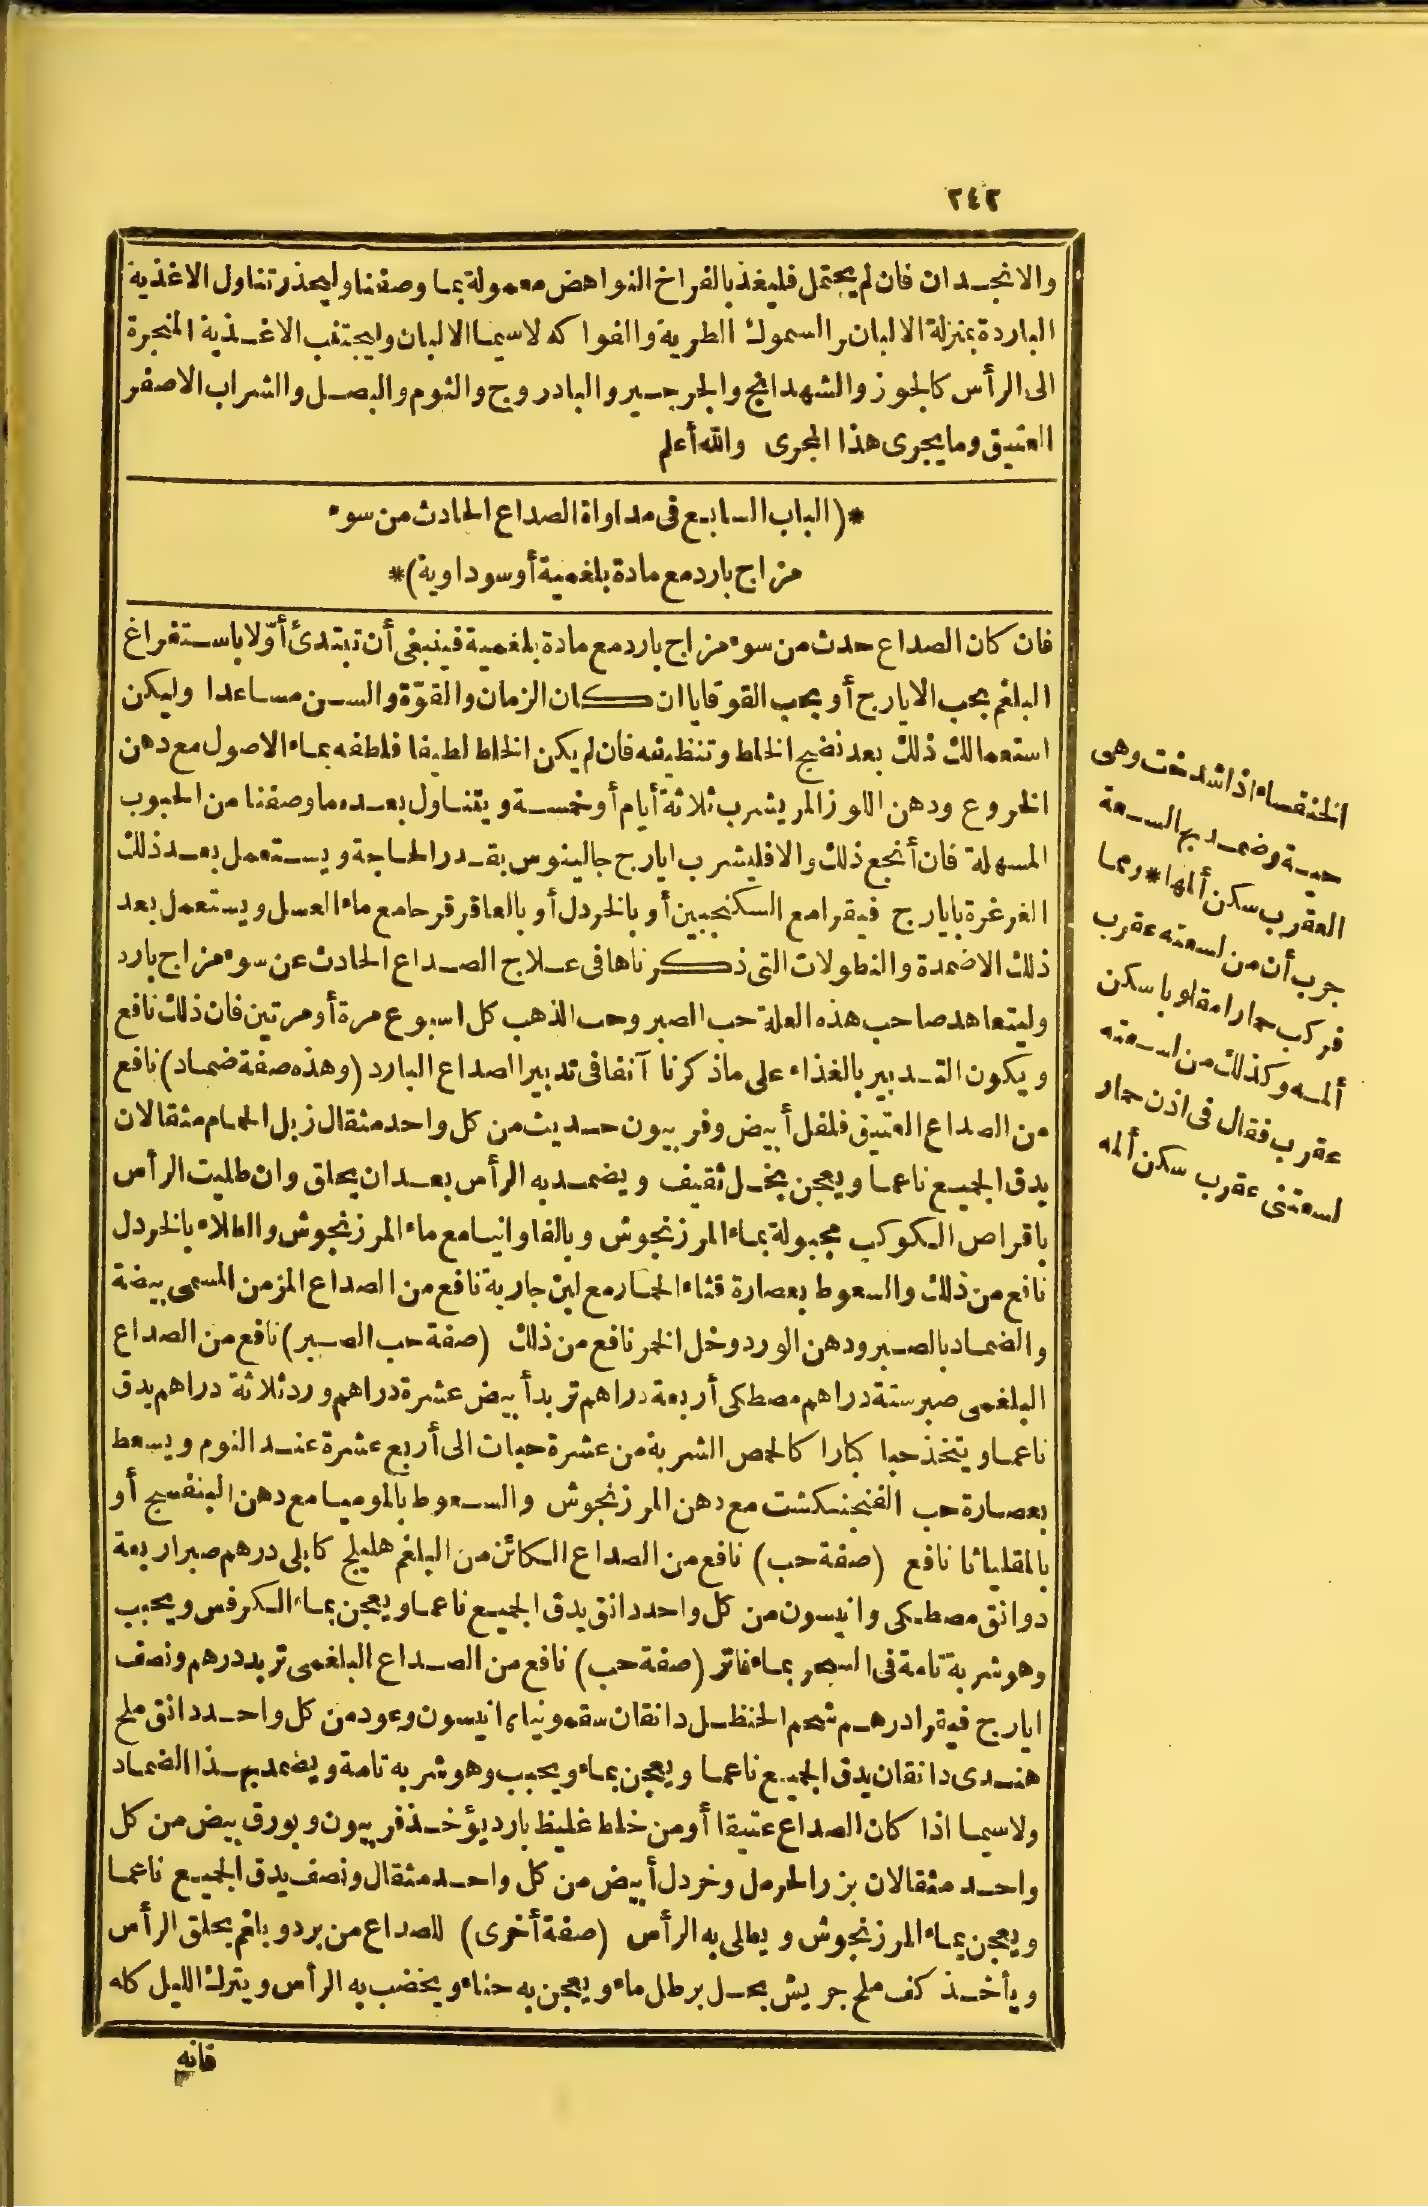 ٢٤٣
والانجدان فان لم يحتمل فليغذ بالفراخ النواهض معمولة بما وصفنا وليحذر تناول الاغذية
الباردة بمنزلة الالبان والسموك الطرية والفواكه لاسيما الالبان وليجتنب الاغذية المنجرة
الى الرأس كالجوز والشهدانج والجرجير والبادروج والثوم والبصل والشراب الاصفر
العتيق وما يجرى هذا المجرى والله أعلم
*(الباب السابع فى مداواة الصداع الحادث من سوء
مزاج بارد مع مادة بلغمية أو سوداوية)*
فان كان الصداع حدث من سوء مزاج بارد مع مادة بلغمية فينبغى أن تبتدئ أوّلا باستفراغ
البلغم بحب الايارج أو بحب القوقايا ان كان الزمان والقوّة والسن مساعدا وليكن
استعمالك ذلك بعد نضج الخلط وتنظيفه فان لم يكن الخلط لطيفا فلطفه بماء الاصول مع دهن
الخروع ودهن اللوز المر يشرب ثلاثة أيام أو خمسة ويتناول بعده ما وصفنا من الحبوب
المسهلة فان أنجع ذلك والا فليشرب ايارج جالينوس بقدر الحاجة ويستعمل بعد ذلك
الغرغرة بايارج فيقرا مع السكنجبين أو بالخردل أو بالعاقر قرحا مع ماء العسل ويستعمل بعد
ذلك الاضمدة والنطولات التى ذكرناها فى علاج الصداع الحادث عن سوء مزاج بارد
وليتعاهد صاحب هذه العلة حب الصبر وحب الذهب كل اسبوع مرة أو مرتين فان ذلك نافع
ويكون التدبير بالغذاء على ما ذكرنا آنفا فى تدبير الصداع البارد (وهذه صفة ضماد) نافع
من الصداع العتيق فلفل أبيض وفربيون حديث من كل واحد مثقال زبل الحمام مثقالان
يدق الجميع ناعما ويعجن بخل ثقيف ويضمد به الرأس بعد ان يحلق وان طليت الرأس
باقراص الكوكب مجبولة بماء المرزنجوش وبالفاوانيا مع ماء المرزنجوش والطلاء بالخردل
نافع من ذلك والسعوط بعصارة قثاء الحمار مع لبن جارية نافع من الصداع المزمن المسمى بيضة
والضماد بالصبر ودهن الورد وخل الخمر نافع من ذلك (صفة حب الصبر) نافع من الصداع
البلغمى صبر ستة دراهم مصطكى أربعة دراهم تربد أبيض عشرة دراهم ورد ثلاثة دراهم يدق
ناعما ويتخذ حبا كبارا كالحمص الشربة من عشرة حبات الى أربع عشرة عند النوم ويسعط
بعصارة حب الفنجنكشت مع دهن المرزنجوش والسعوط بالموميا مع دهن البنفسج أو
بالمقلياثا نافع (صفة حب) نافع من الصداع الكائن من البلغم هليلج كابلى درهم صبر اربعة
دوانق مصطكى وانيسون من كل واحد دانق يدق الجميع ناعما ويعجن بماء الكرفس ويحبب
وهو شربة تامة فى السحر بماء فاتر (صفة حب) نافع من الصداع البلغمى تربد درهم ونصف
ايارج فيقرا درهم شحم الحنظل دانقان سقمونيا انيسون وعود من كل واحد دانق ملح
هندى دانقان يدق الجميع ناعما ويعجن بماء ويحبب وهو شربة تامة ويضمد بهذا الضماد
ولاسيما اذا كان الصداع عتيقا أو من خلط غليظ بارد يؤخذ فربيون وبورق بيض من كل
واحد مثقالان بزر الحرمل وخردل أبيض من كل واحد مثقال ونصف يدق الجميع ناعما
ويعجن بماء المرزنجوش ويطلى به الرأس (صفة أخرى) للصداع من برد وبلغم يحلق الرأس
ويأخذ كف ملح جريش يحل برطل ماء ويعجن به حناء ويخضب به الرأس ويترك الليل كله
فانه
الخنفساء اذا شدخت وهى
حية وضمد بها لسعة
العقرب سكن ألمها * ومما
جرب أن من لسعته عقرب
فركب حمارا مقلوبا سكن
ألمه وكذلك من لسعته
عقرب فقال فى اذن حمار
لسعتنى عقرب سكن ألمه